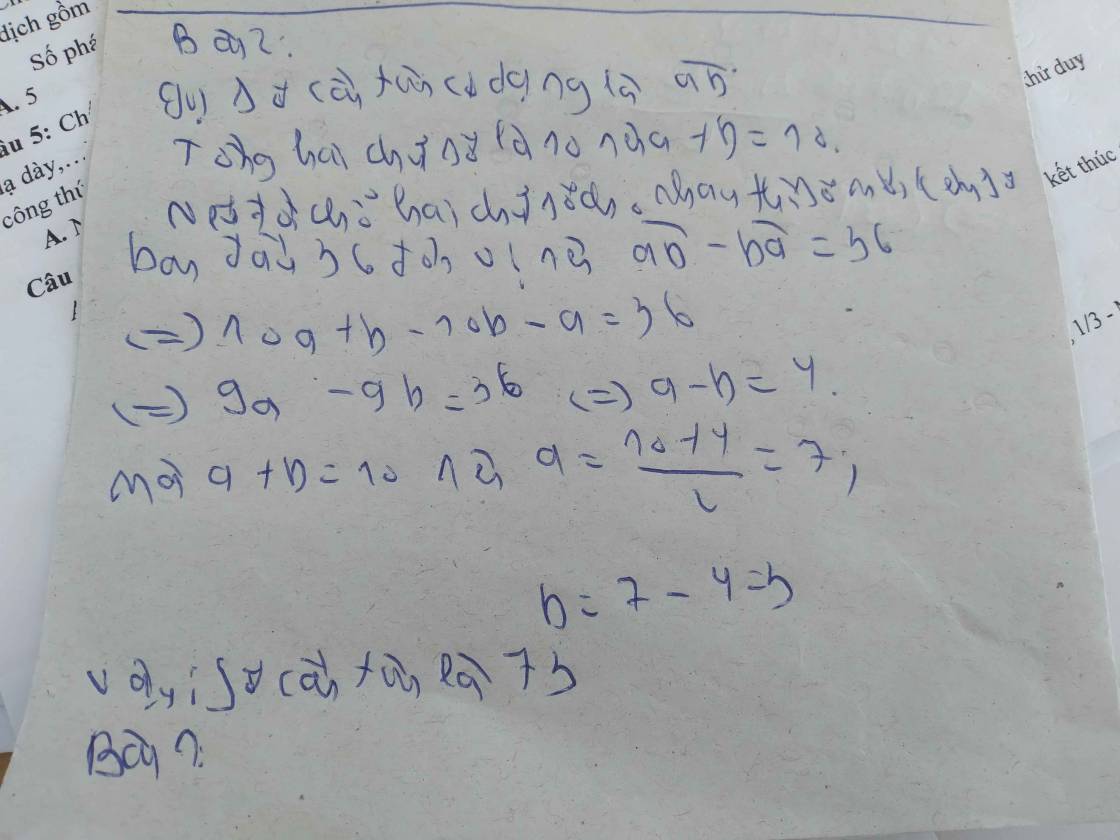 dịch gồm
Số phá
A. 5
âu 5: Chấ
lạ dày,...
công thứ
A. N
Câu
hử duy
kết thúc
, 1/3 -
Bài 2:
Gọi số cần tìm có dạng là ab
Tổng hai chữ số là 10 nên a + b = 10.
Nếu đổi chỗ hai chữ số cho nhau thì số mới kém số
ban đầu 36 đơn vị nên ab - ba = 36
(=) 10a + b - 10b - a = 36
(=) 9a - 9b = 36 (=) a - b = 4.
Mà a + b = 10 nên a = (10 + 4)/2 = 7;
b = 7 - 4 = 3
Vậy: Số cần tìm là 73
Bài 1: